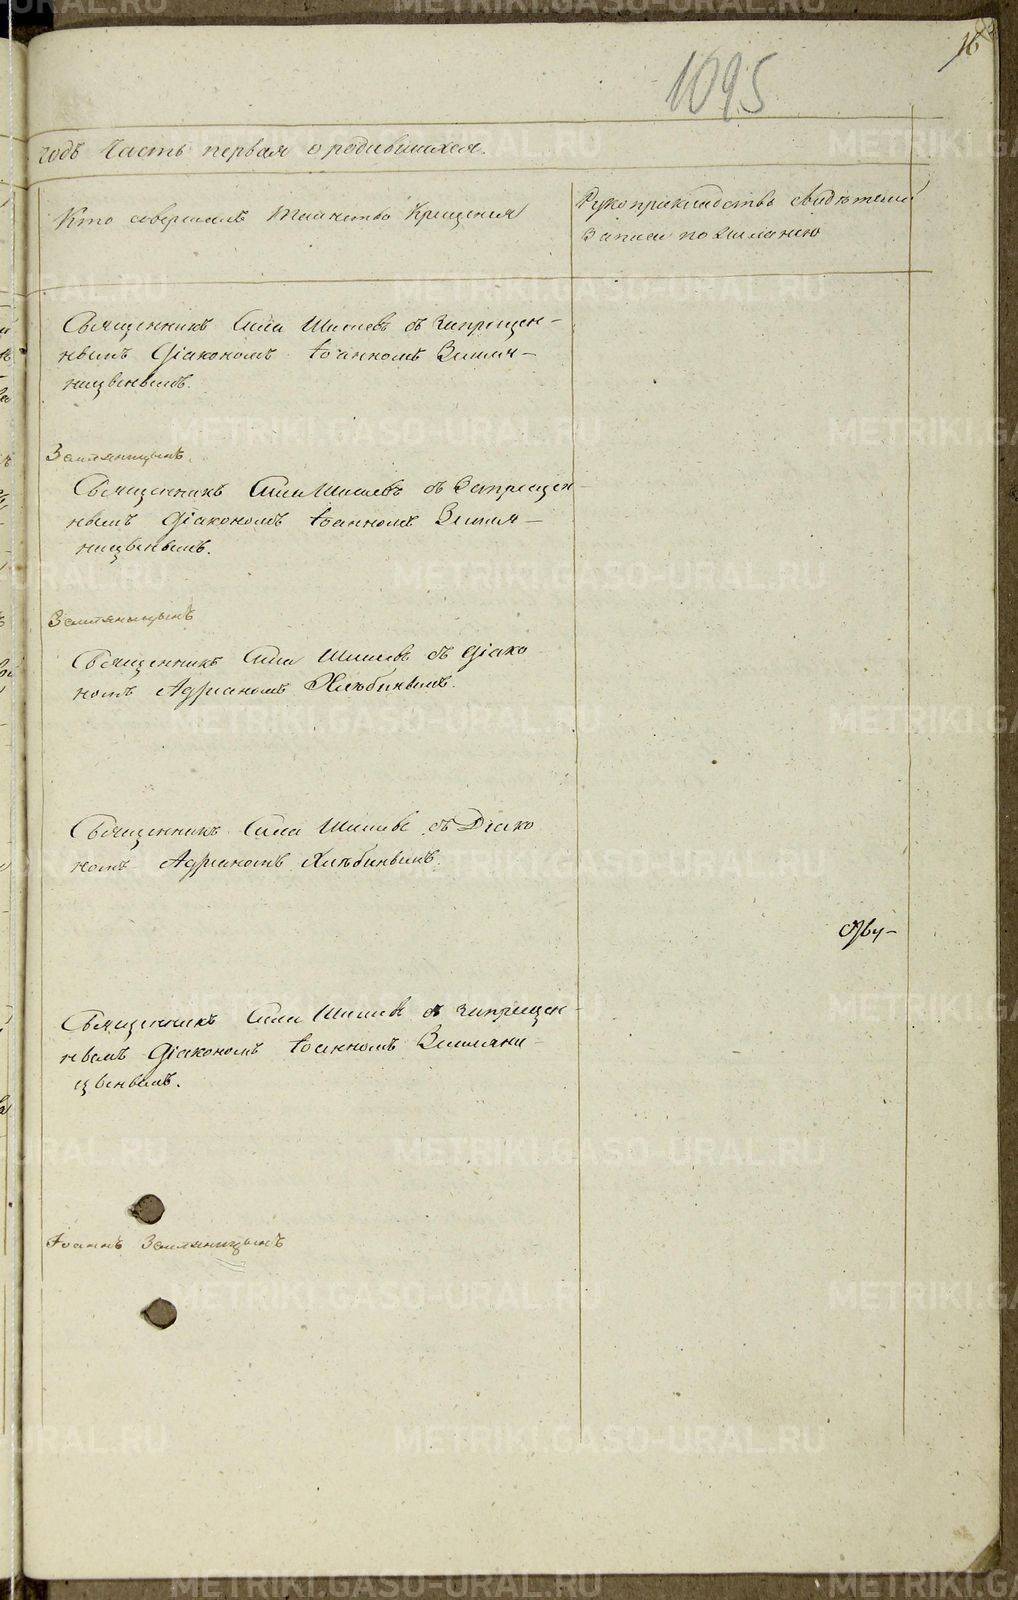 16
1095
годъ Часть первая о родившихся.
Кто совершалъ таинство Крещения
Рукоприкладство свидѣтелей
записи по желанию
Священникъ Сила Шишевъ съ запрещен-
нымъ Діакономъ Іоанномъ Земля-
ницынымъ.
Земляницынъ.
Священникъ Сила Шишевъ съ Запрещен-
нымъ Діакономъ Іоанномъ Земля-
ницынымъ.
Земляницынъ
Священникъ Сила Шишевъ съ Діако
номъ Адрианомъ Хлѣбинымъ.
Священникъ Сила Шишевъ съ Діако
номъ Адрианомъ Хлѣбинымъ.
Священникъ Сила Шишевъ съ запрещен-
нымъ Діакономъ Іоанномъ Земляни-
цынымъ.
Іоаннъ Земляницынъ
METRIKI.GASO-URAL.RU